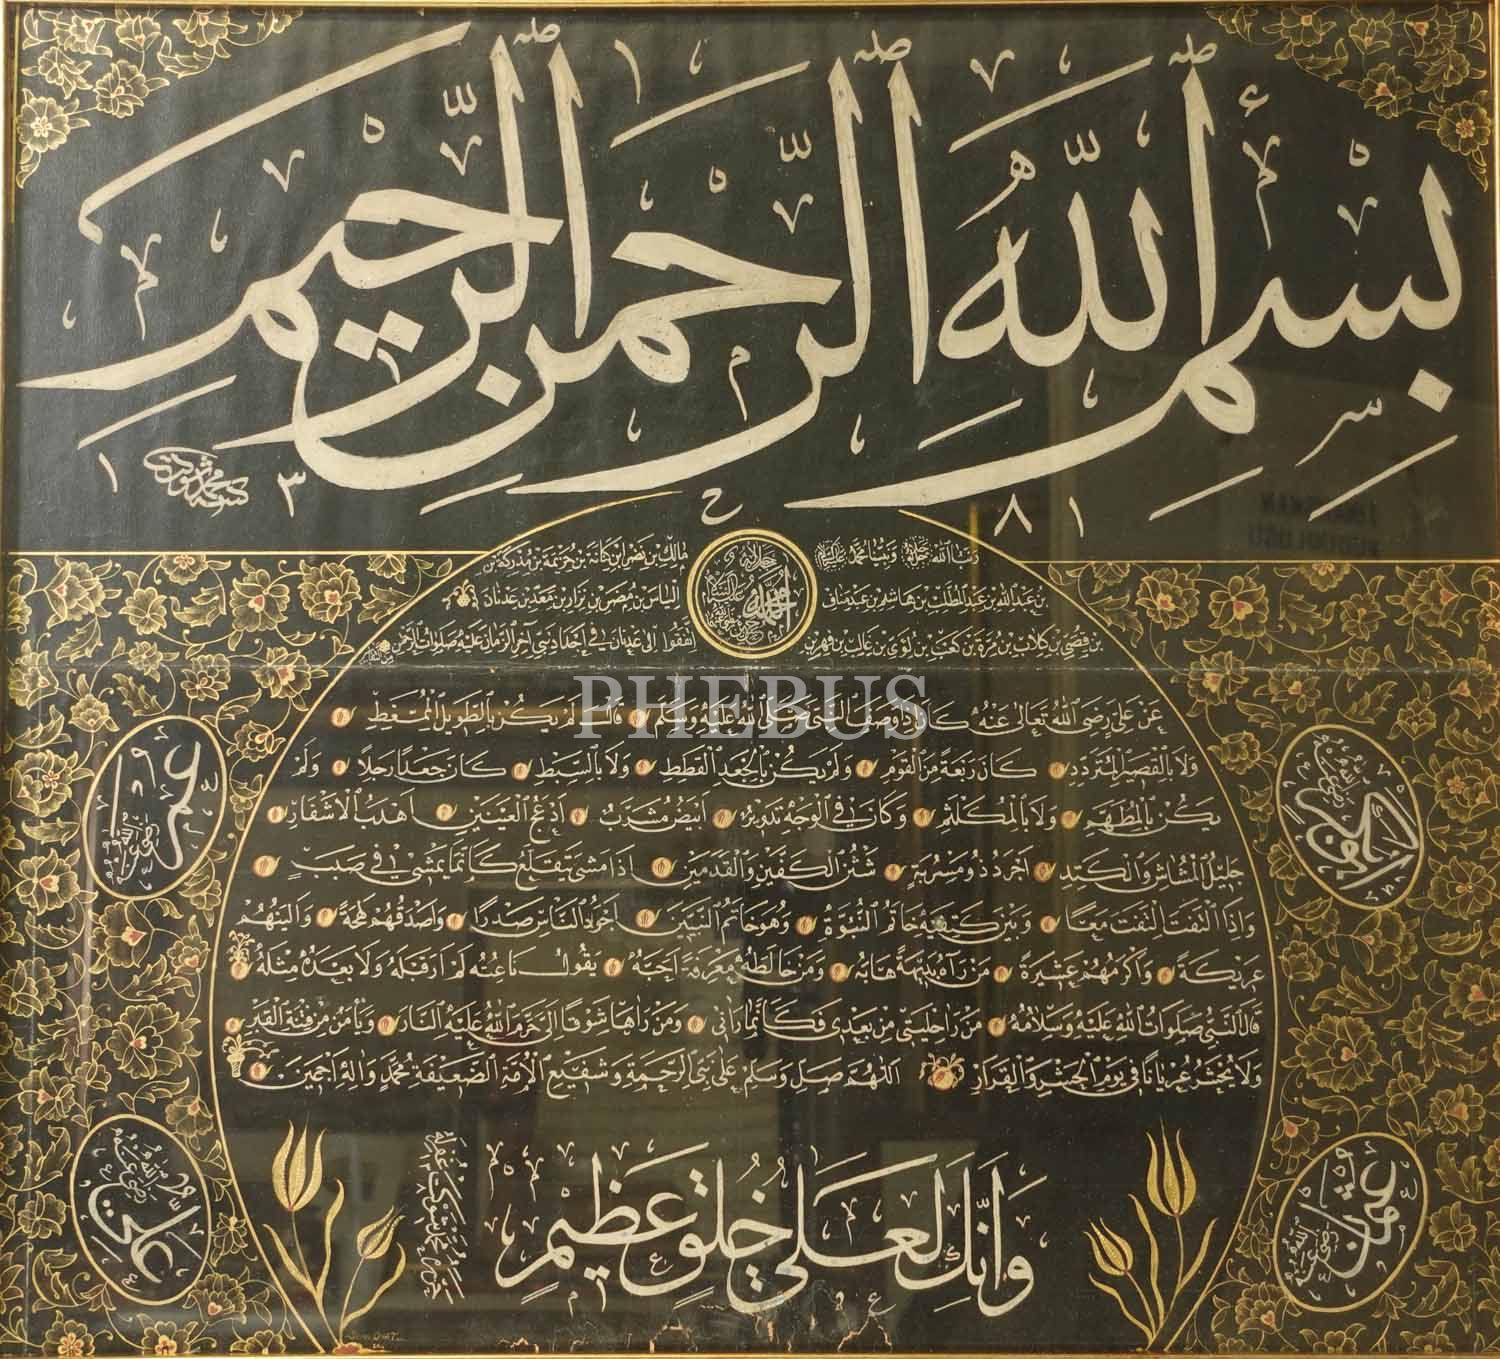 بِسْمِ اللّٰهِ الرَّحْمٰنِ الرَّحِيمِ
كتبه محمد شوقي
١٣ ٨١
ربنا الله جل جلاله ونبينا محمد عليه السلام
بن عبد الله بن عبد المطلب بن هاشم بن عبد مناف
بن قصي بن كلاب بن مرة بن كعب بن لؤي بن غالب بن فهر بن
مالك بن نضر بن كنانة بن خزيمة بن مدركة بن
الياس بن مضر بن نزار بن معد بن عدنان
اتفقوا الى عدنان في اجداد نبي آخر الزمان عليه صلوات الرحمن
PHEBUS
عن علي رضي الله تعالى عنه كان اذا وصف النبي صلى الله عليه وسلم قال لم يكن بالطويل الممغط
ولا بالقصير المتردد كان ربعة من القوم ولم يكن بالجعد القطط ولا بالسبط كان جعدا رجلا ولم
يكن بالمطهم ولا بالمكلثم وكان في الوجه تدوير ابيض مشرب ادعج العينين اهدب الاشفار
جليل المشاش والكتد اجرد ذو مسربة شثن الكفين والقدمين اذا مشى تقلع كانما يمشي في صبب
واذا التفت التفت معا وبين كتفيه خاتم النبوة وهو خاتم النبيين اجود الناس صدرا واصدقهم لهجة والينهم
عريكة واكرمهم عشيرة من رآه بديهة هابه ومن خالطه معرفة احبه يقول ناعته لم ار قبله ولا بعده مثله
قال النبي صلوات الله عليه وسلامه من رأى حليتي من بعدي فكانما رآني ومن رآها شوقا الي حرم الله عليه النار ويأمن من فتنة القبر
ولا يحشر عريانا في يوم الحشر والقرار اللهم صل وسلم على نبي الرحمة وشفيع الامة الضعيفة محمد واله اجمعين
ابو بكر
عمر
رضي الله عنه
عثمان
رضي الله عنه
علي
رضي الله عنه
وَاِنَّكَ لَعَلٰى خُلُقٍ عَظِيمٍ